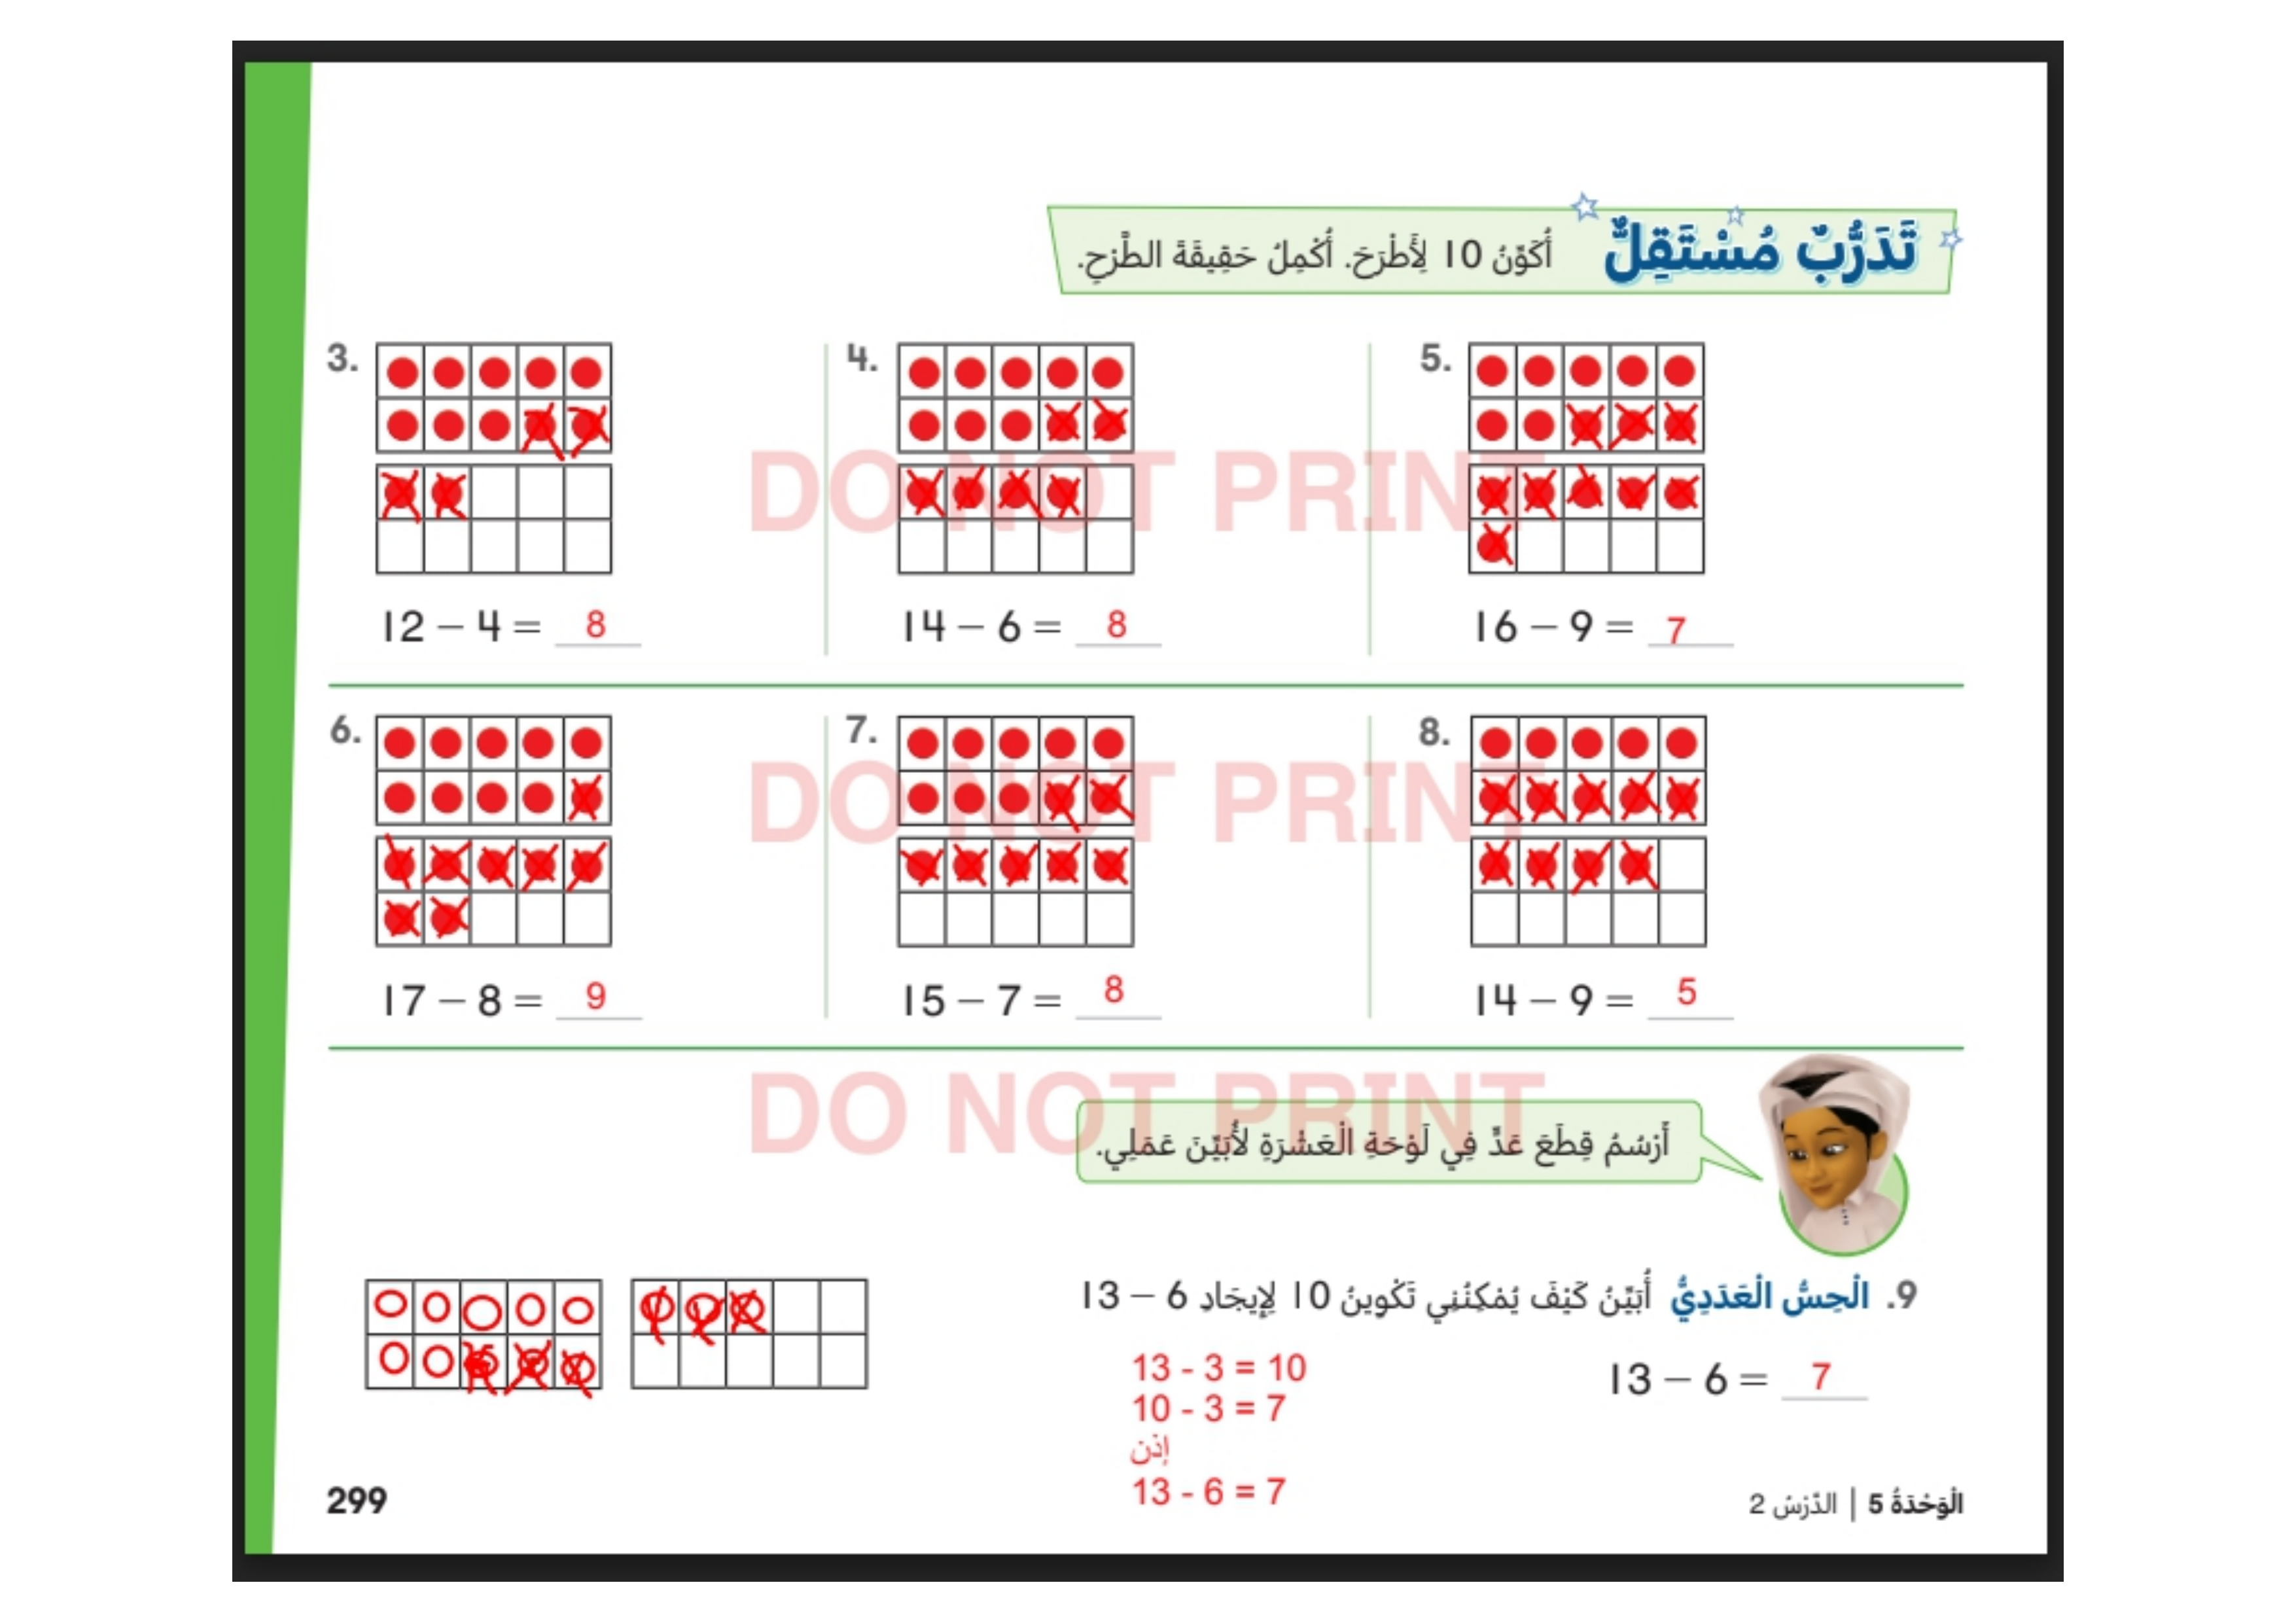 تَدَرُّبٌ مُسْتَقِلٌّ أُكَوِّنُ 10 لِأَطْرَحَ. أُكْمِلُ حَقِيقَةَ الطَّرْحِ.
3. 4. 5.
12 − 4 = 8
14 − 6 = 8
16 − 9 = 7
DO NOT PRINT
6. 7. 8.
17 − 8 = 9
15 − 7 = 8
14 − 9 = 5
DO NOT PRINT
DO NOT PRINT
أَرْسُمُ قِطَعَ عَدٍّ فِي لَوْحَةِ الْعَشَرَةِ لأُبَيِّنَ عَمَلِي.
9. الْحِسُّ الْعَدَدِيُّ أُبَيِّنُ كَيْفَ يُمْكِنُنِي تَكْوِينُ 10 لِإِيجَادِ 6 − 13
13 − 6 = 7
13 - 3 = 10
10 - 3 = 7
إذن
13 - 6 = 7
299
الْوَحْدَةُ 5 | الدَّرْسُ 2